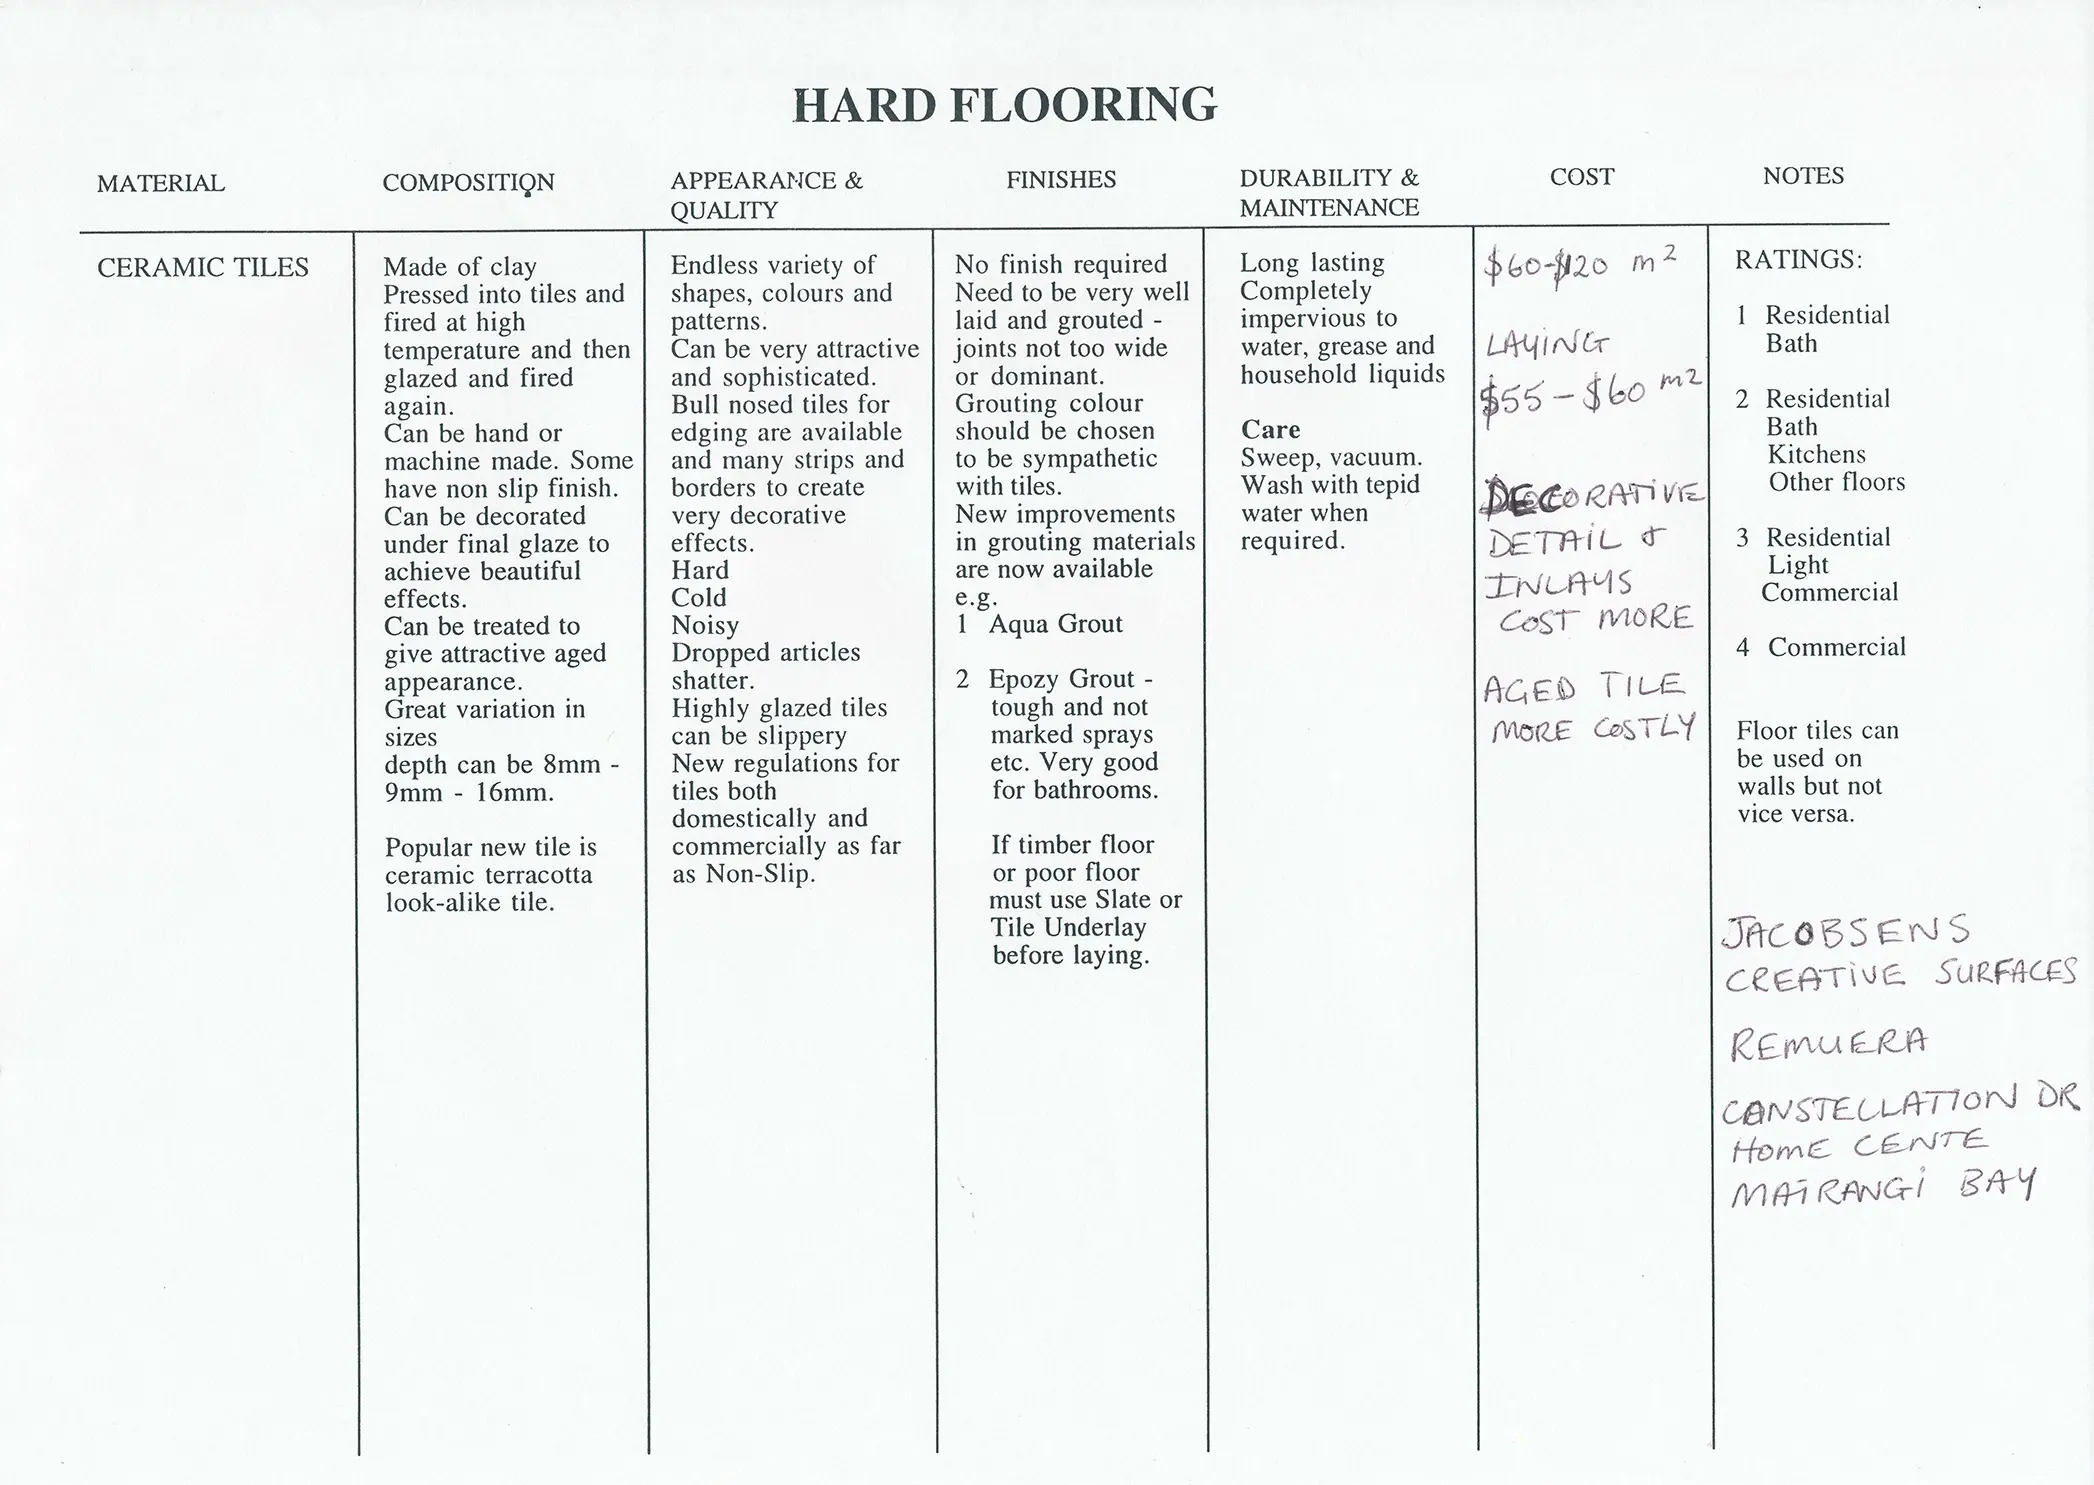 HARD FLOORING
MATERIAL
COMPOSITION
APPEARANCE &
QUALITY
FINISHES
DURABILITY &
MAINTENANCE
COST
NOTES
CERAMIC TILES
Made of clay
Pressed into tiles and
fired at high
temperature and then
glazed and fired
again.
Can be hand or
machine made. Some
have non slip finish.
Can be decorated
under final glaze to
achieve beautiful
effects.
Can be treated to
give attractive aged
appearance.
Great variation in
sizes
depth can be 8mm -
9mm - 16mm.
Popular new tile is
ceramic terracotta
look-alike tile.
Endless variety of
shapes, colours and
patterns.
Can be very attractive
and sophisticated.
Bull nosed tiles for
edging are available
and many strips and
borders to create
very decorative
effects.
Hard
Cold
Noisy
Dropped articles
shatter.
Highly glazed tiles
can be slippery
New regulations for
tiles both
domestically and
commercially as far
as Non-Slip.
No finish required
Need to be very well
laid and grouted -
joints not too wide
or dominant.
Grouting colour
should be chosen
to be sympathetic
with tiles.
New improvements
in grouting materials
are now available
e.g.
1 Aqua Grout
2 Epozy Grout -
tough and not
marked sprays
etc. Very good
for bathrooms.
If timber floor
or poor floor
must use Slate or
Tile Underlay
before laying.
Long lasting
Completely
impervious to
water, grease and
household liquids
Care
Sweep, vacuum.
Wash with tepid
water when
required.
$60-$120 m²
LAYING
$55 - $60 m2
DECORATIVE
DETAIL &
INLAYS
COST MORE
AGED TILE
MORE COSTLY
RATINGS:
1 Residential
Bath
2 Residential
Bath
Kitchens
Other floors
3 Residential
Light
Commercial
4 Commercial
Floor tiles can
be used on
walls but not
vice versa.
JACOBSENS
CREATIVE SURFACES
REMUERA
CONSTELLATION DR
HOME CENTE
MAIRANGI BAY